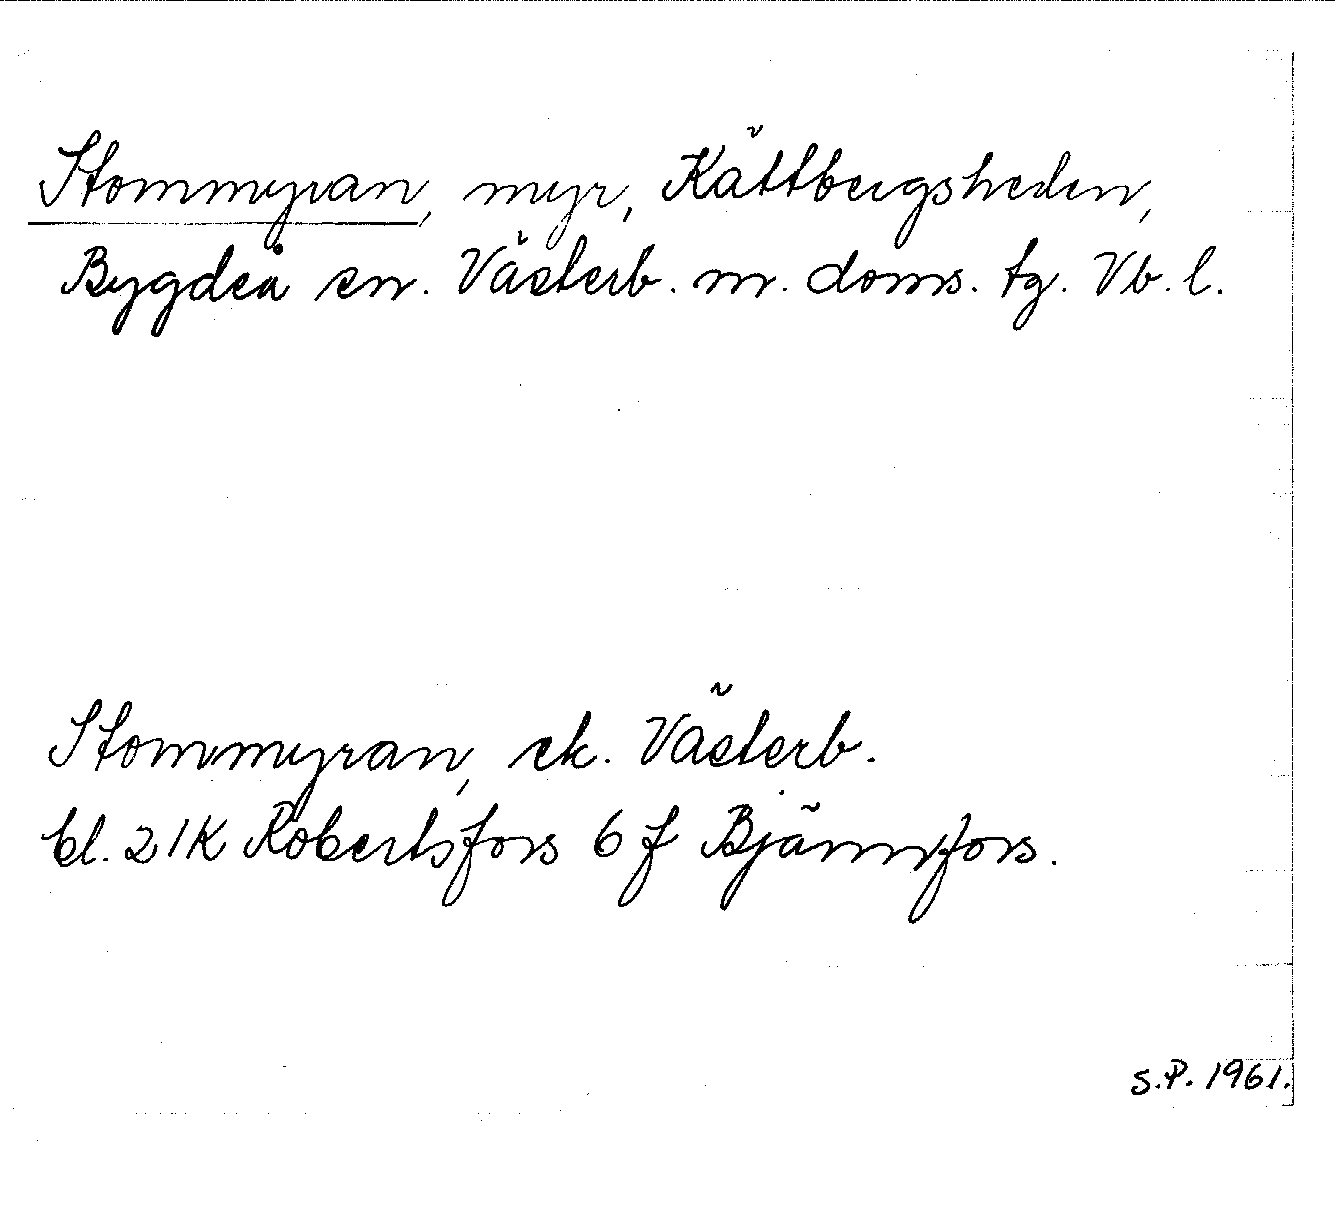 Stommyran, myr, Kättbergsheden,
Bygdeå sn. Västerb. m. doms. tg. Vb. l.
Stommyran, ek. Västerb.
bl. 21K Robertsfors 6 f Bjännfors.
S.P. 1961.